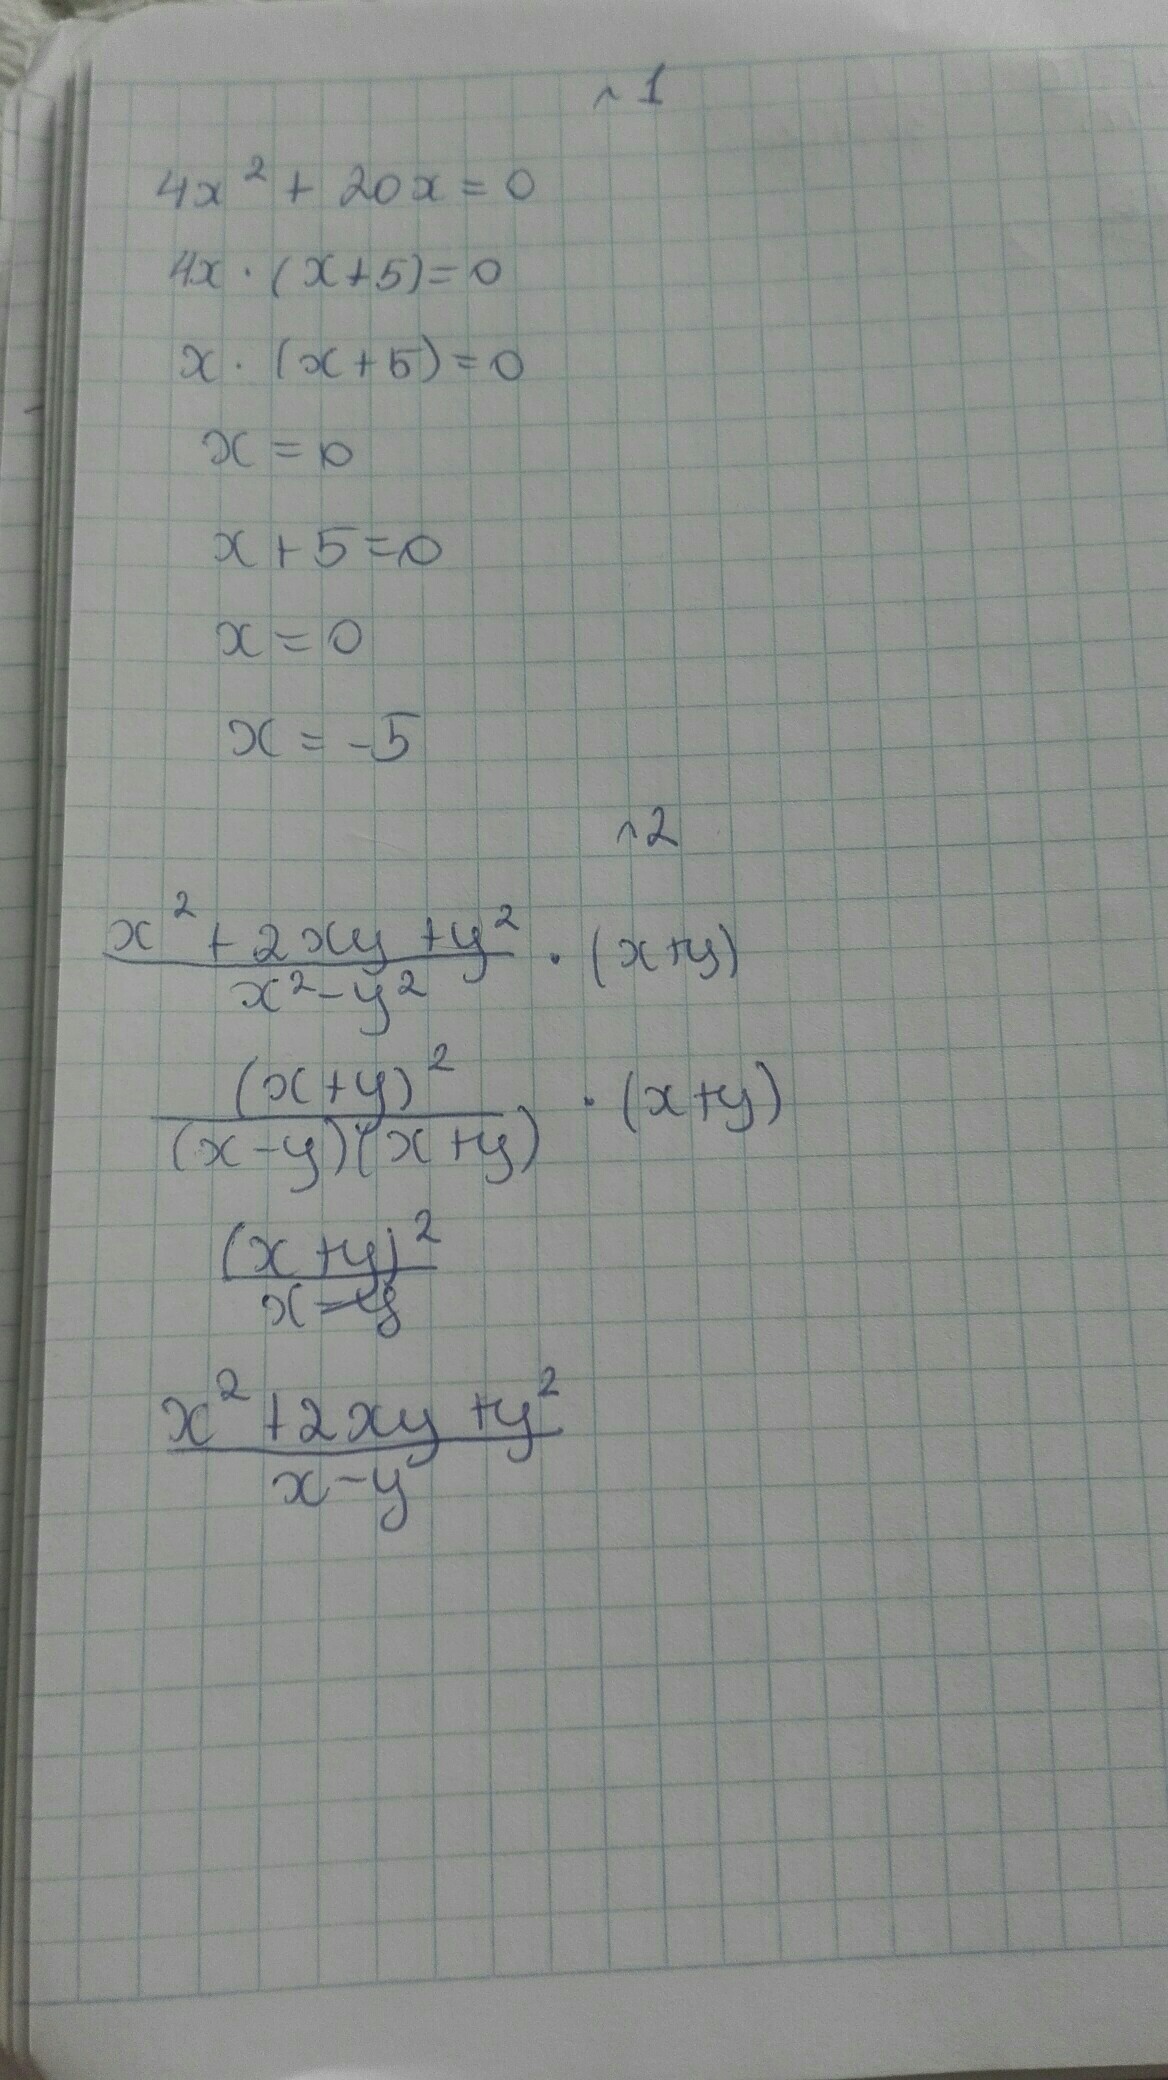 ~1
4x² + 20x = 0
4x · (x+5) = 0
x · (x+5) = 0
x = 0
x + 5 = 0
x = 0
x = -5
~2
(x² + 2xy + y²)/(x² - y²) · (x+y)
(x+y)²/((x-y)(x+y)) · (x+y)
(x+y)²/(x-y)
(x² + 2xy + y²)/(x-y)